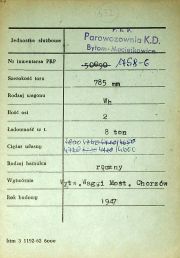 P. K. P.
Jednostka służbowa Parowozownia K.D.
Bytom-Maciejkowice
Nr inwentarza PKP 1458-G
Szerokość toru 785 mm
Rodzaj wagonu Wh
Ilość osi 2
Ładowność w t. 8 ton
Ciężar własny
Rodzaj hamulca ręczny
Wytwórnia Wytw. Wag. i Most. Chorzów
Rok budowy 1947